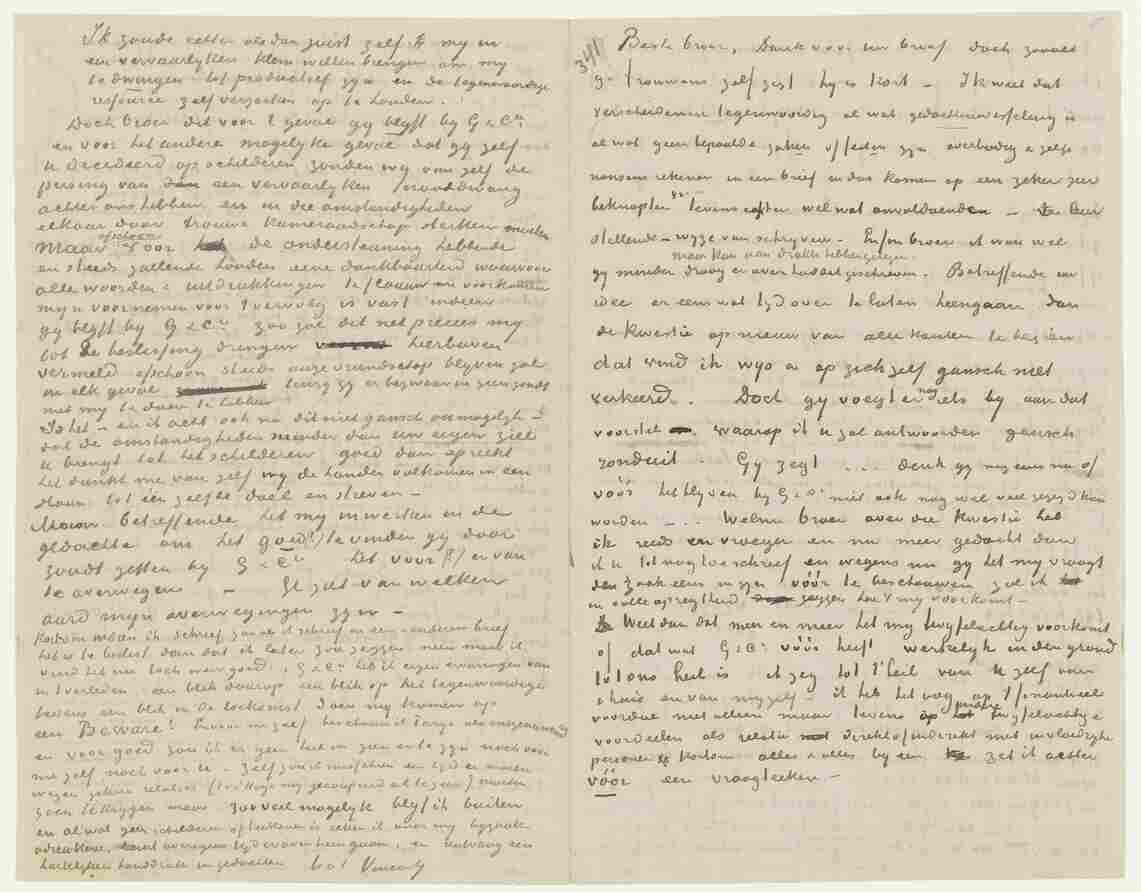 Ik zoude echter
een vervaarlyken klem willen brengen om my
te dwingen tot productief zyn en de tegenwoordige
resource zelf verzoeken op te houden.
Doch broer dit voor 't geval gy blyft by G&Cie
en voor het andere mogelyke geval dat gy zelf
u decideerd op schilderen zouden wy van zelf de
persing van een vervaarlyken nooddwang
achter ons hebben en in die omstandigheden
elkaar door trouwe kameraadschap sterken moeten
Maar ofschoon voor de ondersteuning hebbende
en steeds zullende houden eene dankbaarheid waarvoor
alle woorden & uitdrukkingen te flaauw me voorkomen
myn voornemen voor 't vervolg is vast indien
gy blyft by G&Cie zoo zal dit net precies my
tot de beslissing dringen hierboven
vermeld ofschoon steeds onze vriendschap blyven zal
in elk geval tenzy gy er bezwaar in zien zoudt
met my te doen te hebben
Is het – en ik acht ook na dit niet gansch onmogelyk –
dat de omstandigheden minder dan uw eigen ziel
u brengt tot het schilderen goed dan spreekt
het dunkt me van zelf wy de handen volkomen in een
slaan tot een zelfde doel en streven –
Maar betreffende het my inwerken in de
gedachte om het goed(!) te vinden gy door
zoudt zetten by G&Cie het voor (!) er van
te overwegen – Ge ziet van welken
aard myn overwegingen zyn –
Kortom indien ik schreef zooals ik schreef in een anderen brief
het is te beslist dan dat ik later zou zeggen neen maar ik
vind het nu toch weer goed, G&Cie heb ik eigen ervaringen van
in 't verleden een blik daarop een blik op het tegenwoordige
tevens een blik in de toekomst doen my komen op
een Beware!
en voor goed zou ik er geen heil in zien er te zyn noch voor
me zelf noch voor u –
wegen zekere relaties
zien te krygen maar zooveel mogelyk blyf ik buiten
en al wat geen schilderen of teekenen is reken ik niet my byzaak
adieu kerel, laat overigens tyd er over heen gaan, en ontvang een
hartelyken handdruk in gedachten t. à t. Vincent
341
Beste broer, Dank voor uw brief doch zooals
ge trouwens zelf zegt hy is kort – Ik weet dat
verscheidenen tegenwoordig al wat gedachtenwisseling is
al wat geen bepaalde zaken of feiten zyn overbodig & zelfs
nonsens rekenen in een brief en dus komen op een zeker zeer
beknopten levens echter wel wat onvoldoenden – te leur
stellende – wyze van schryven – Enfin broer ik wou wel
maar kan van drukte hebben gelegen
gy minder droog en over het had geschreven. Betreffende een
idee er eens wat tyd over te laten heengaan dan
de kwestie op nieuw van alle kanten te bezien
dat vind ik wys & op zich zelf gansch niet
verkeerd. Doch gy voegt er nog iets by aan dat
voorstel waarop ik u zal antwoorden gansch
ronduit. Gy zegt .... denk gy nog eens na of
vóór het blyven by G&Cie niet ook nog wel veel gezegd kan
worden – ... Welnu broer over die kwestie heb
ik reeds en vroeger en nu meer gedacht dan
ik u tot nog toe schreef en wegens nu gy het my vraagt
de zaak eens in zyn vóór te beschouwen zal ik
in volle opregtheid zeggen hoe 't my voorkomt –
Weet dan dat meer en meer het my twyfelachtig voorkomt
of dat wat G&Cie vóór heeft werkelyk in den grond
tot ons heil is ik zeg tot 't heil van U zelf van
t huis en van myzelf – ik heb het oog op 't finantieele
voordeel niet alleen maar tevens op andere twyfelachtige
voordeelen als relatie direkt of indirekt met invloedryke
personen &c kortom alles & alles by een zet ik achter
vóór een vraagteeken –